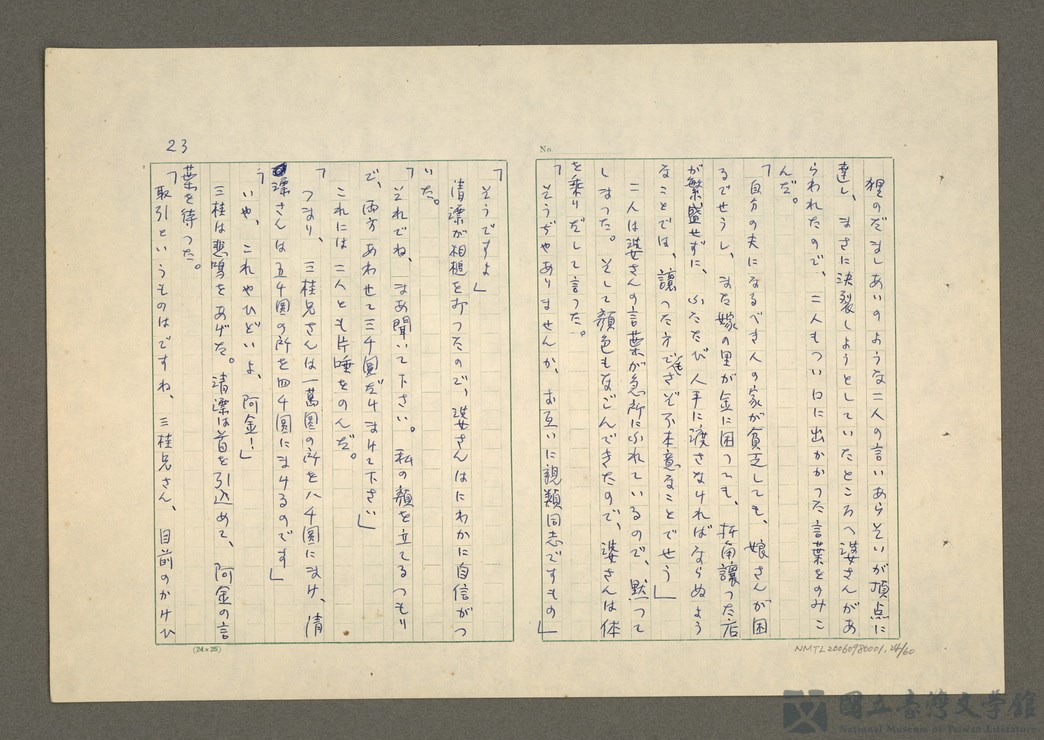 23
No.
狸のだましあいのような二人の言いあらそいが頂点に
達し、まさに決裂しようとしていたところへ婆さんがあ
らわれたので、二人もつい口に出かかつた言葉をのみこ
んだ。
「自分の夫になるべき人の家が貧乏しても、娘さんが困
るでせうし、また嫁の里が金に困つても、折角譲つた店
が繁盛せずに、ふたたび人手に渡さなければならぬよう
なことでは、譲つた方でもさぞ不本意なことでせう」
二人は婆さんの言葉が急所にふれているので、黙つて
しまつた。そして顔色もなごんできたので、婆さんは体
を乗りだして言つた。
「そうぢやありませんか、お互いに親類同志ですもの」
「そうですよ」
清漂が相槌を打つたので、婆さんはにわかに自信がつ
いた。
「それでね、まあ聞いて下さい。私の顔を立てるつもり
で、両方あわせて三千圓だけまけて下さい」
これには二人とも片唾をのんだ。
「つまり、三桂兄さんは一萬圓の所を八千圓にまけ、清
漂さんは五千圓の所を四千圓にまけるのです」
「いや、これやひどいよ、阿金!」
三桂は悲鳴をあげた。清漂は首を引込めて、阿金の言
葉を待つた。
「取引というものはですね、三桂兄さん、目前のかけひ
(24×25)
NMTL20060980001, 24/60
國立臺灣文學館
National Museum of Taiwan Literature